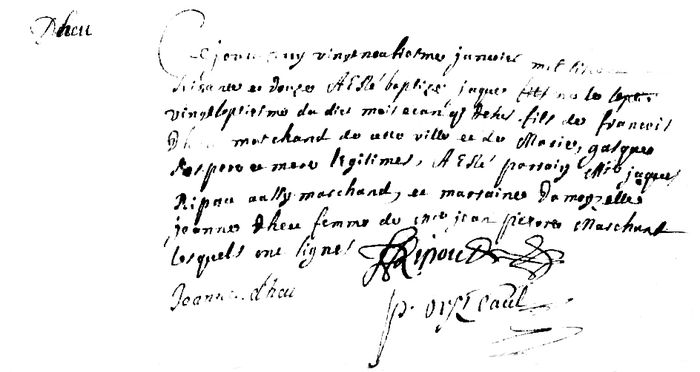 Dheu
Cejourduy vingtneufiesme janvier mil six cens
soixante et douze A Esté baptizé jaques fils né le
vingtseptiesme du dict mois et an, dheu fils de francois
Dheu marchand de cette ville et de Marie gasquet
ses pere et mere legitimes, A Esté parrain jaques
Ripou aussy marchand, et marraine damoyzelle
jeanne dheu femme de jean pierre Marchant
lesquels ont signes
Ripou
Jeanne dheu